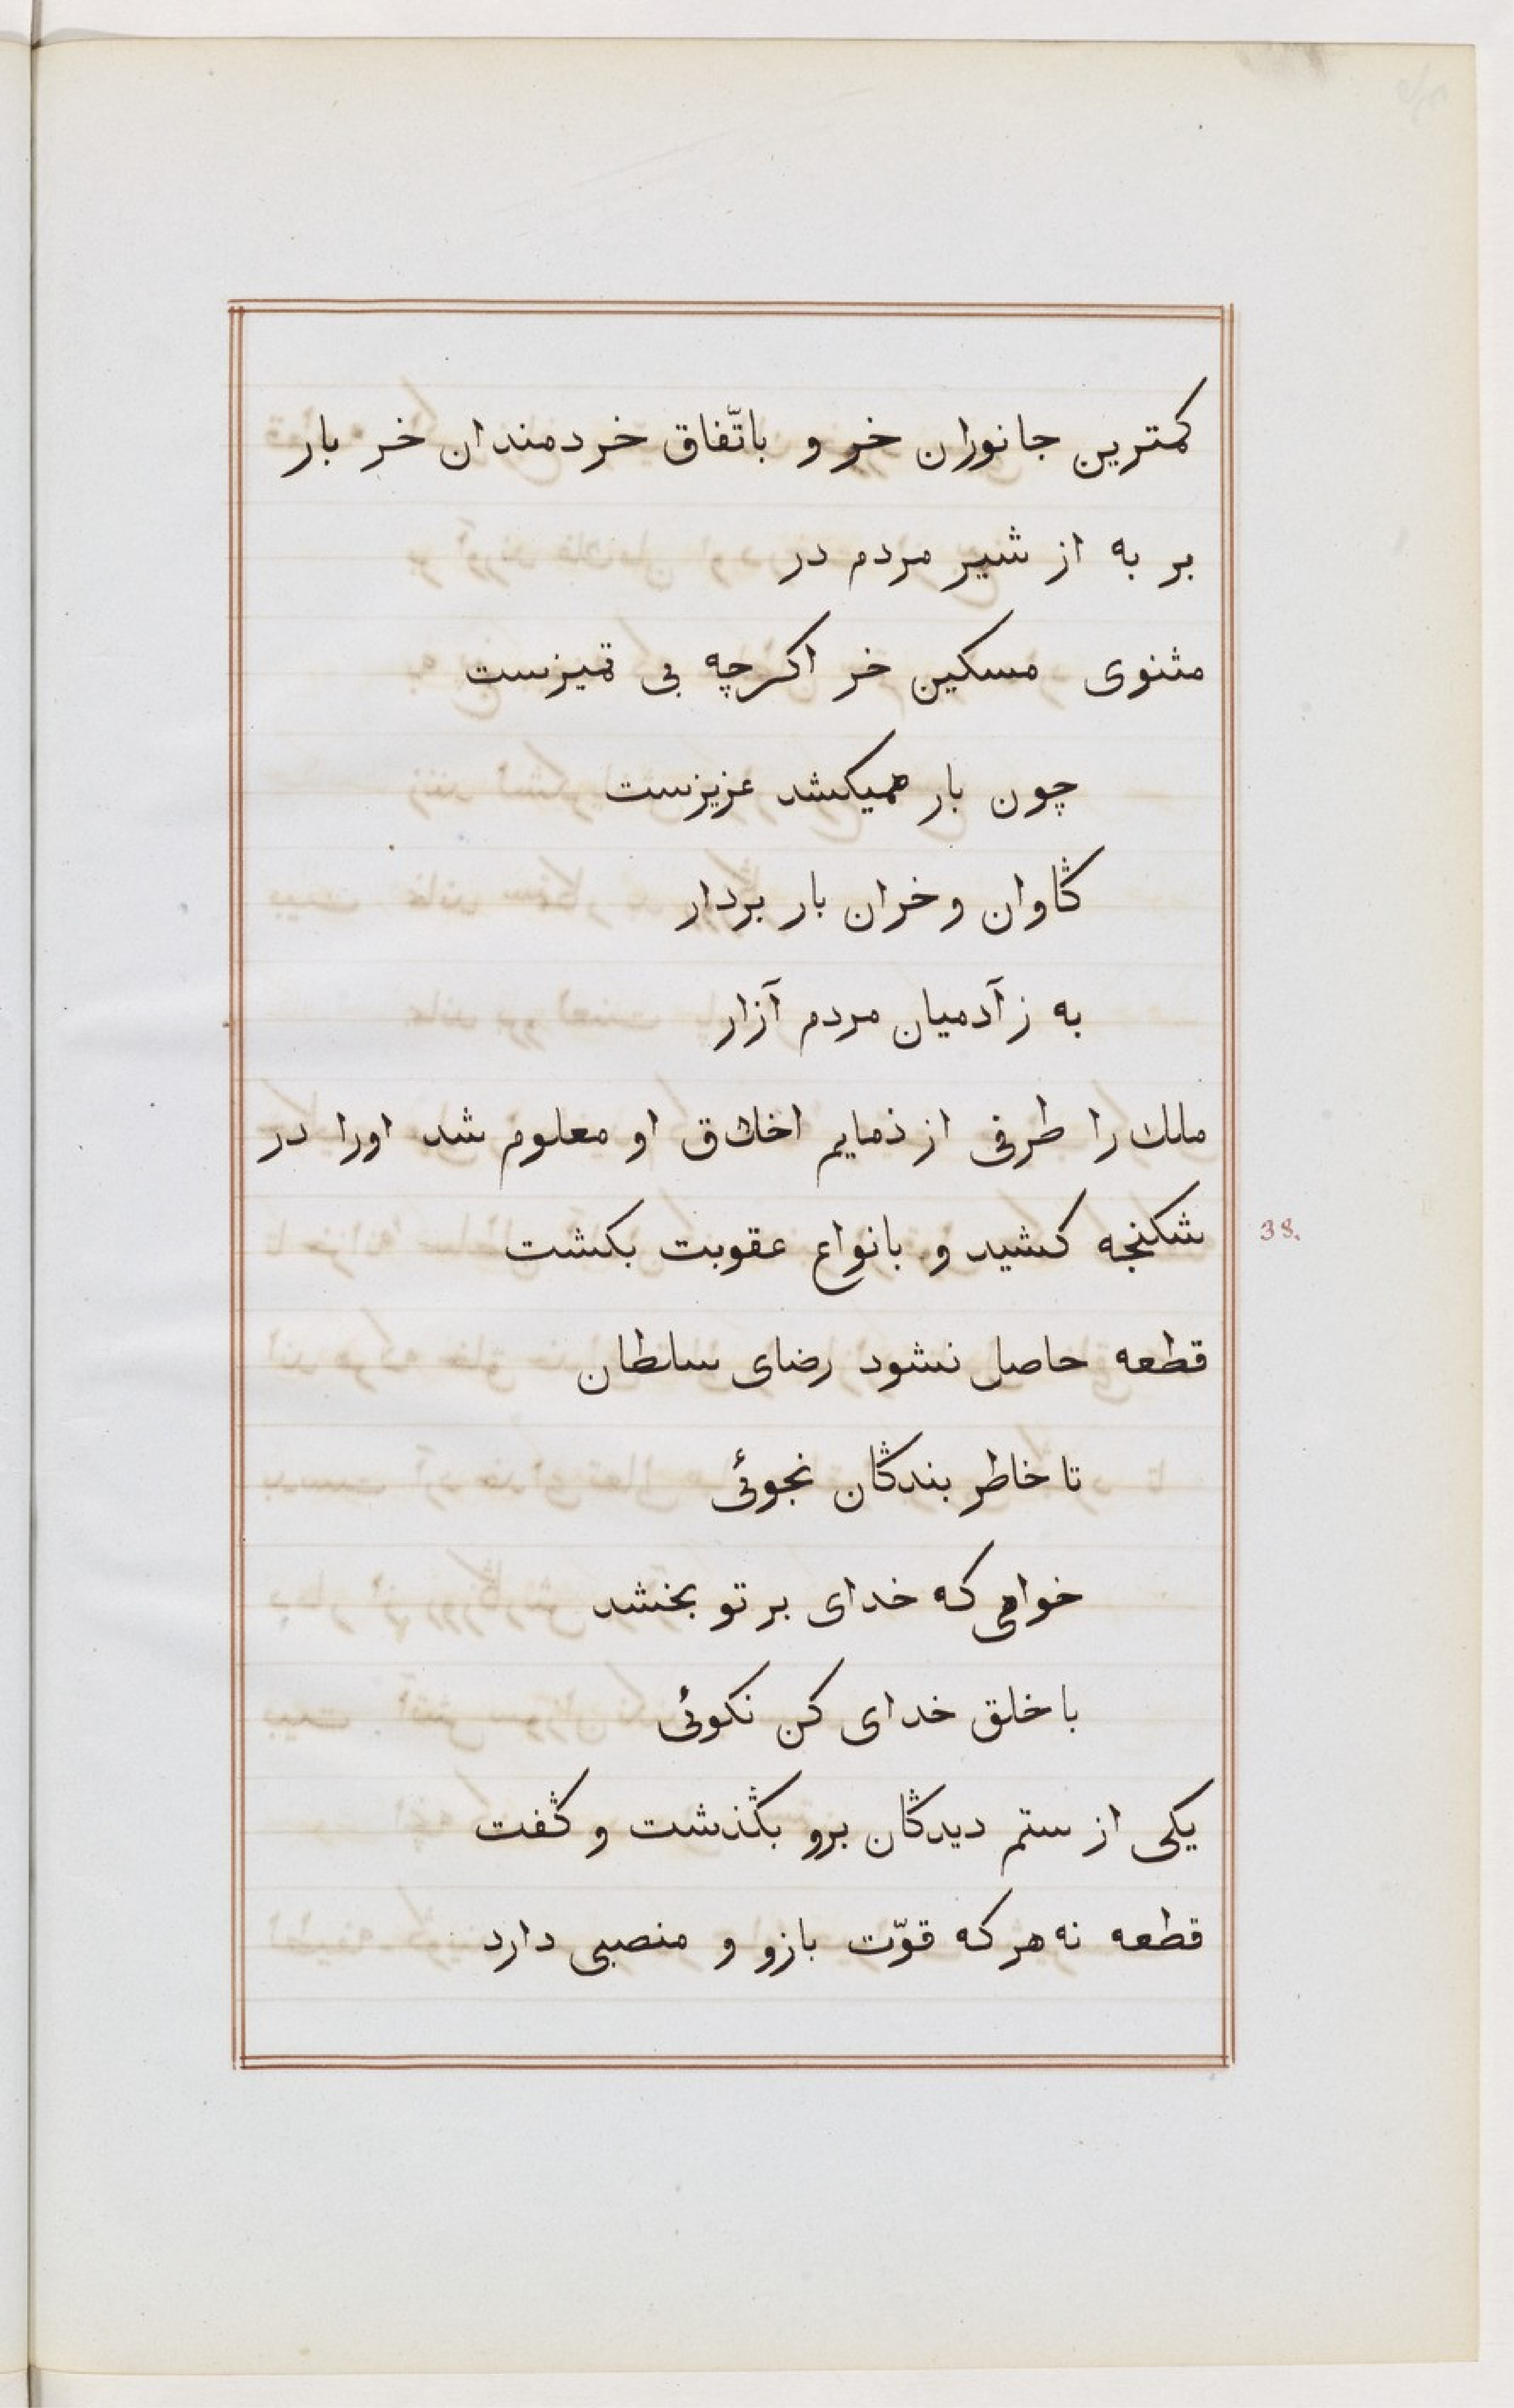 کمترین جانوران خر و باتّفاق خردمندان خر بار
بر به از شیر مردم در
مثنوی مسکین خر اکرچه بی تمیزست
چون بار همیکشد عزیزست
گاوان و خران بار بردار
به ز آدمیان مردم آزار
ملك را طرفی از ذمایم اخلاق او معلوم شد اورا در
شکنجه کشید و بانواع عقوبت بکشت
38.
قطعه حاصل نشود رضای سلطان
تا خاطر بندگان نجوئی
خواهی که خدای بر تو بخشد
با خلق خدای کن نکوئی
یکی از ستم دیدگان برو بگذشت و گفت
قطعه نه هر که قوّت بازو و منصبی دارد